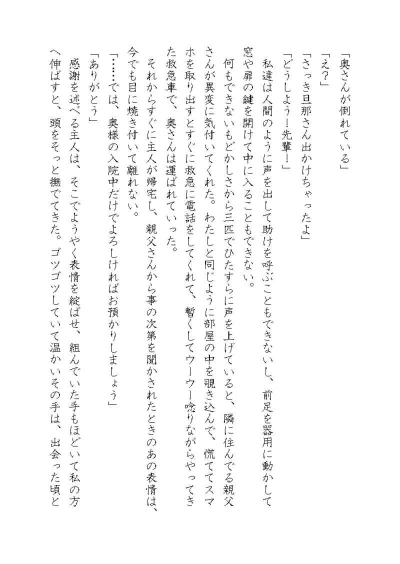 「奥さんが倒れている」
「え？」
「さっき旦那さん出かけちゃったよ」
「どうしよう！先輩！」
　私達は人間のように声を出して助けを呼ぶこともできないし、前足を器用に動かして
窓や扉の鍵を開けて中に入ることもできない。
　何もできないもどかしさから三匹でひたすらに声を上げていると、隣に住んでる親父
さんが異変に気付いてくれた。わたしと同じように部屋の中を覗き込んで、慌ててスマ
ホを取り出すとすぐに救急に電話をしてくれて、暫くしてウーウー唸りながらやってき
た救急車で、奥さんは運ばれていった。
　それからすぐに主人が帰宅し、親父さんから事の次第を聞かされたときのあの表情は、
今でも目に焼き付いて離れない。
「……では、奥様の入院中だけでよろしければお預かりしましょう」
「ありがとう」
　感謝を述べる主人は、そこでようやく表情を綻ばせ、組んでいた手もほどいて私の方
へ伸ばすと、頭をそっと撫でてきた。ゴツゴツしていて温かいその手は、出会った頃と